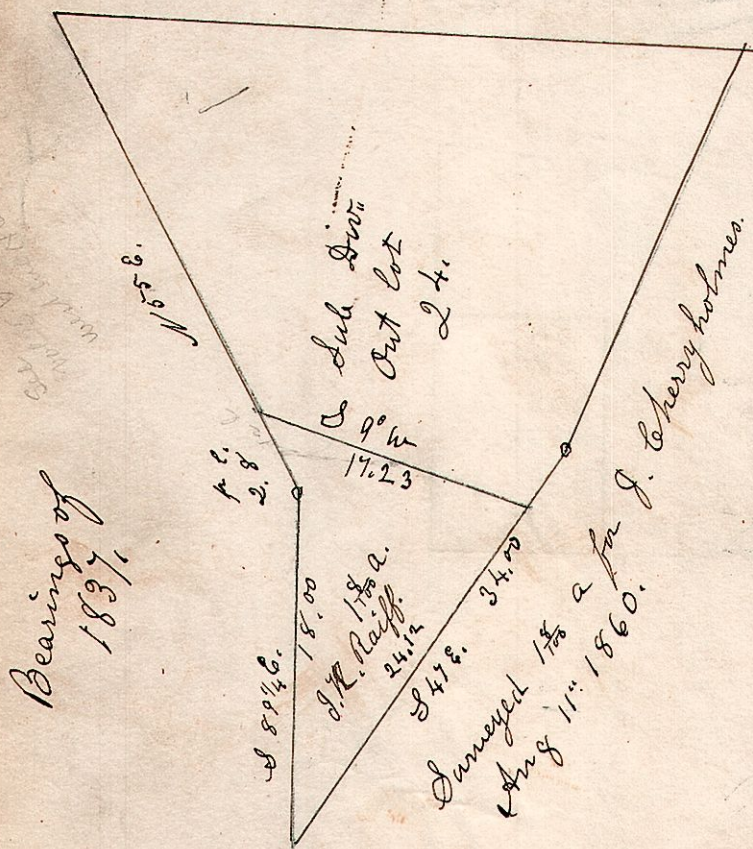 Bearings of
1837.
N 55 E.
Sub Div.
Out Lot
24.
S 9° W
17.23
p l.
2.8
S 89 1/4 E.
18.00
J. K. Raiff.
1 8/100 a.
24.12
S 47 E.
34.00
Surveyed 1 8/100 a for J. Cherryholmes.
Aug 11" 1860.